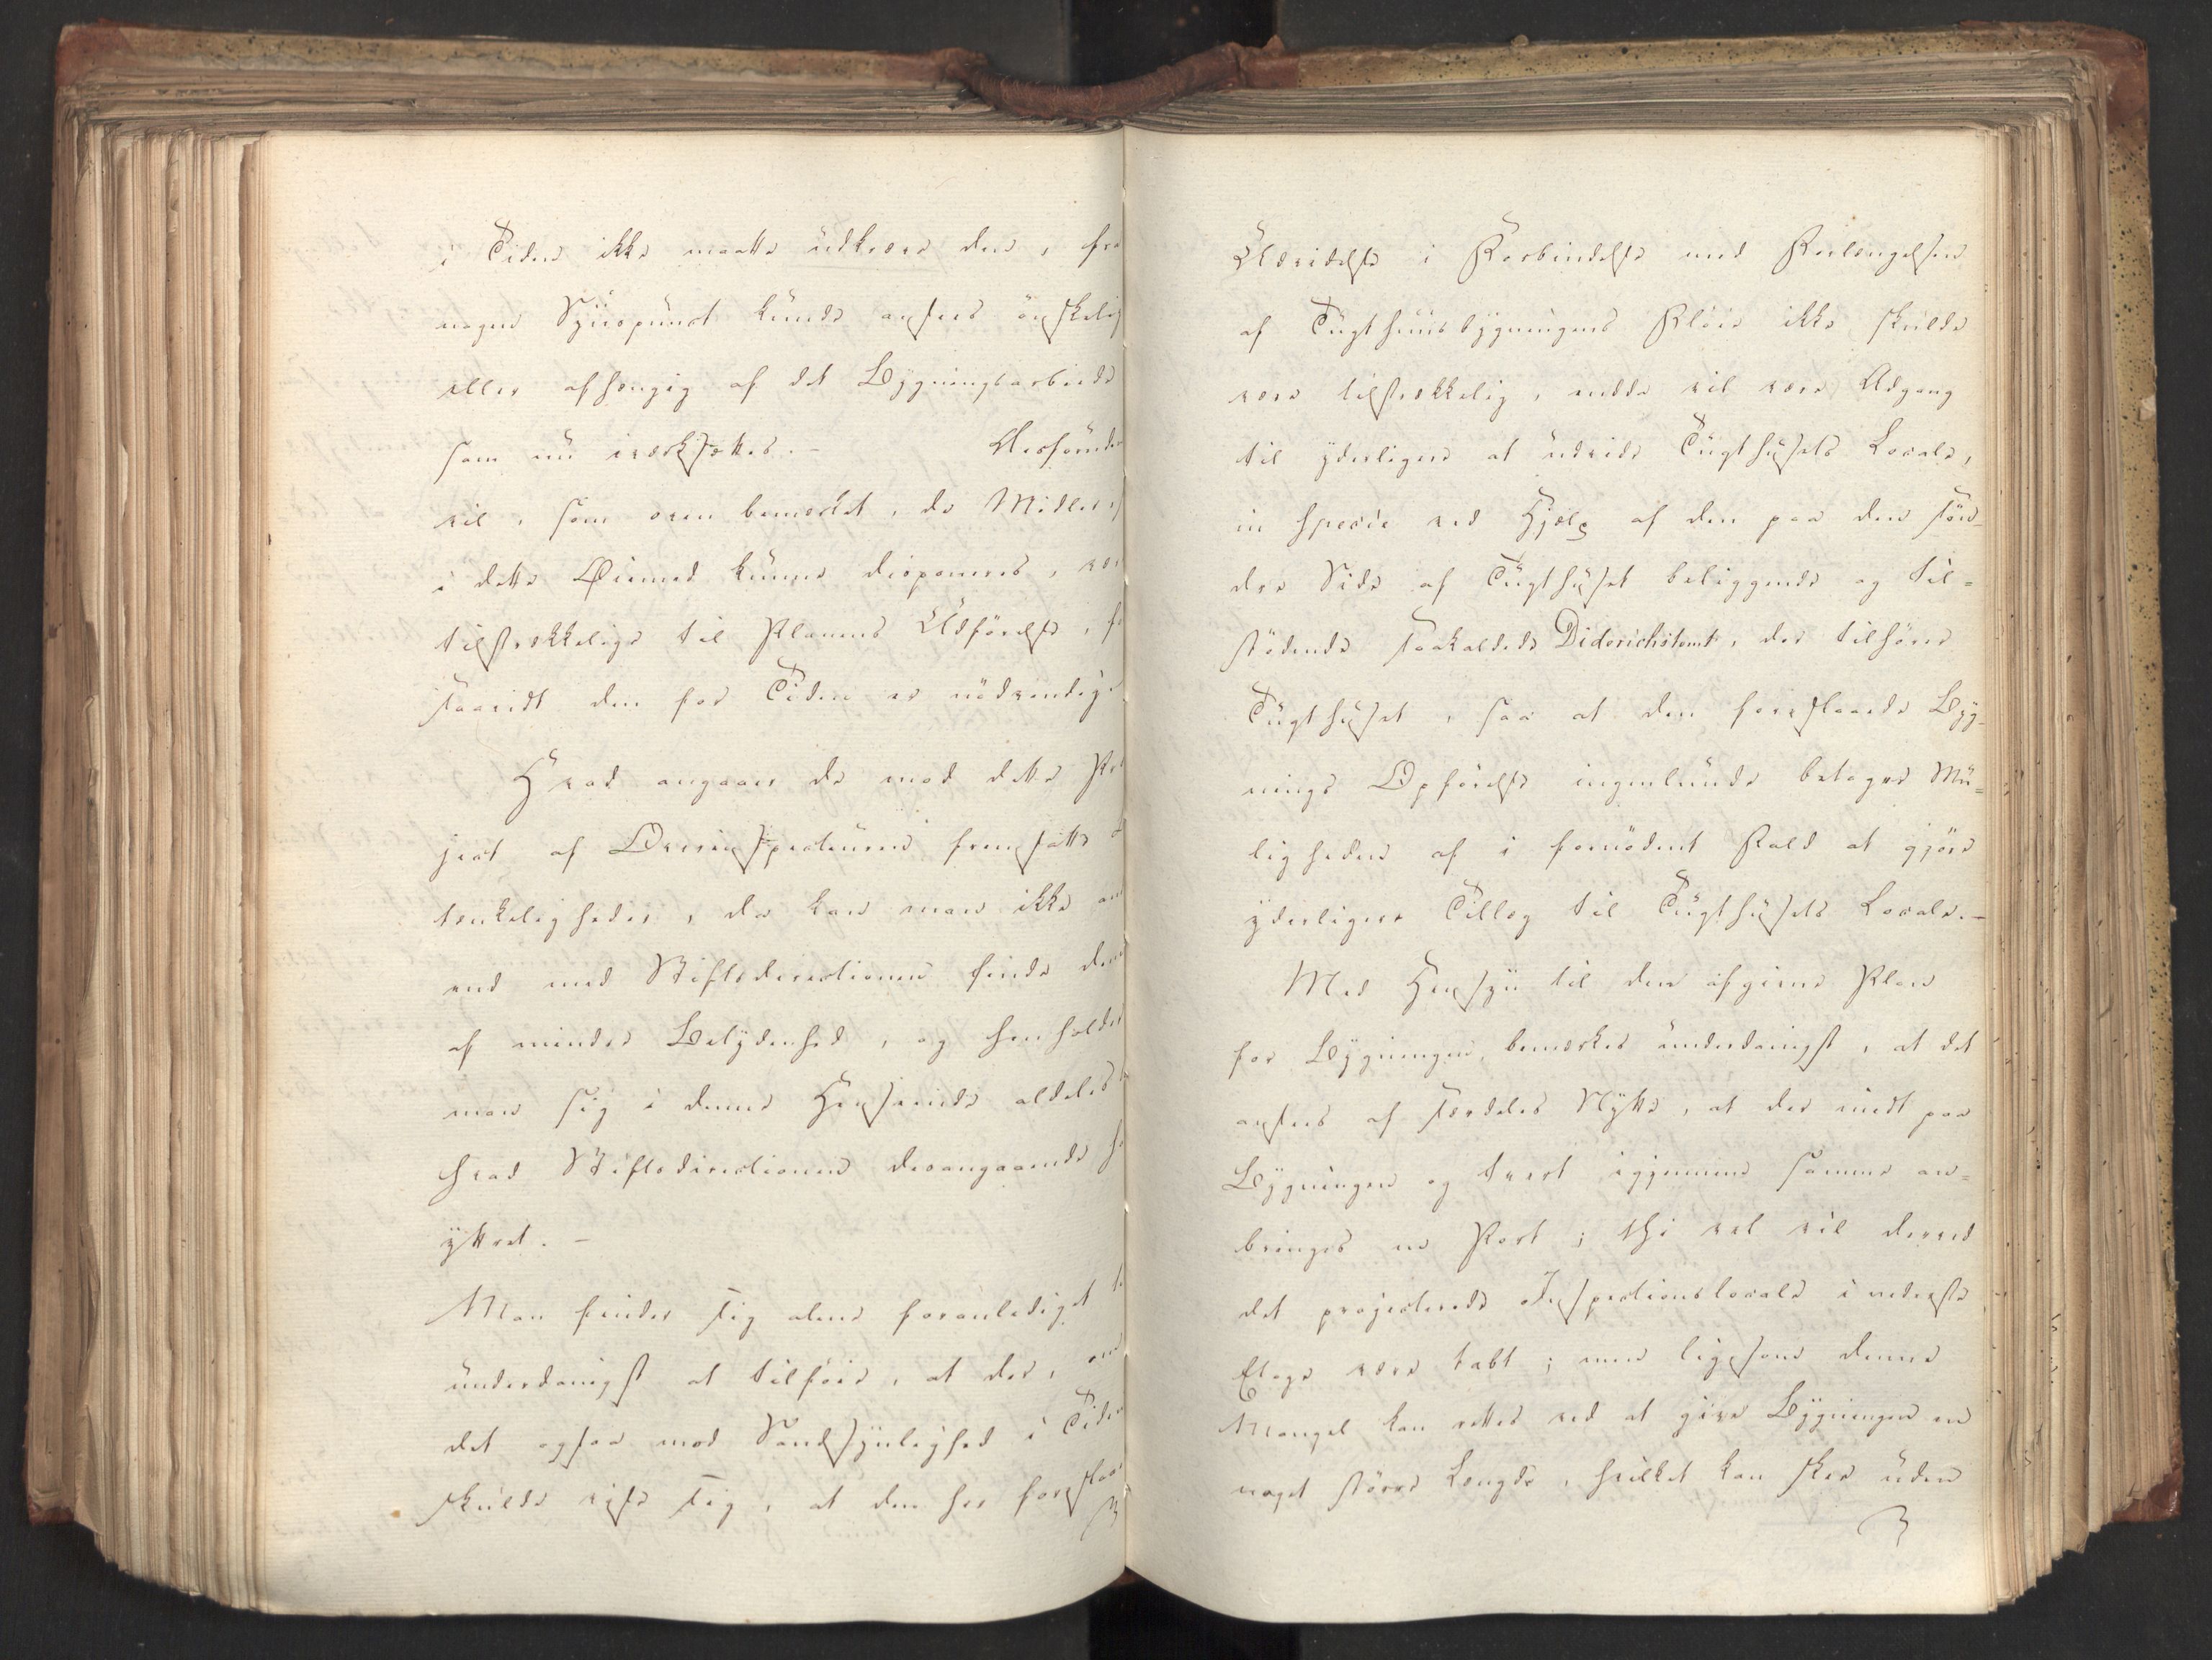 i Tiden ikke maatte udkræve den, fra
nogen Synspunct kunde ansees önskelig
eller afhængig af det Bygningsarbeide
som nu iværksættes. –
vil, som oven bemærket, de Midler,
i dette Øiemed kunne disponeres, vær
tilstrækkelige til Planens Udförelse, fo
saavidt den for Tiden er nödvendig.
Hvad angaaer de mod dette Pro
ject af Overinspecteuren fremsatte
tænkeligheder, da kan man ikke an
end med Stiftsdirectionen finde dem
af mindre Betydenhed, og henholder
man sig i denne Henseende aldeles
hvad Stiftsdirectionen desangaaende ha
yttret. –
Man finder sig alene foranlediget
underdanigst at tilföie, at der, om
det ogsaa mod Sandsynlighed i Tiden
skulde vise sig, at den her foreslaae
Udvidelse i Forbindelse med Forlængelsen
af Tugthuusbygningens Flöie ikke skulde
være tilstrækkelig, endda vil være Adgang
til yderligere at udvide Tugthusets Locale,
in specie ved Hjelp af den paa den sön-
dre Side af Tugthuset beliggende og til=
stödende saakaldede Diderichstomt, der tilhörer
Tugthuset, saa at den foreslaaede Byg-
nings Opförelse ingenlunde betager Mu=
ligheden af i fornödent Fald at gjöre
yderligere Tillæg til Tugthusets Locale. –
Med Hensyn til den afgivne Plan
for Bygningen, bemærkes underdanigst, at det
ansees af særdeles Nytte, at der midt paa
Bygningen og tvert igjennem samme an=
bringes en Port; thi vel vil derved
det projecterede Inspectionslocale i nederste
Etage være tabt; men ligesom denne
Mangel kan rettes ved at give Bygningen en
noget större Længde, hvilket kan skee uden